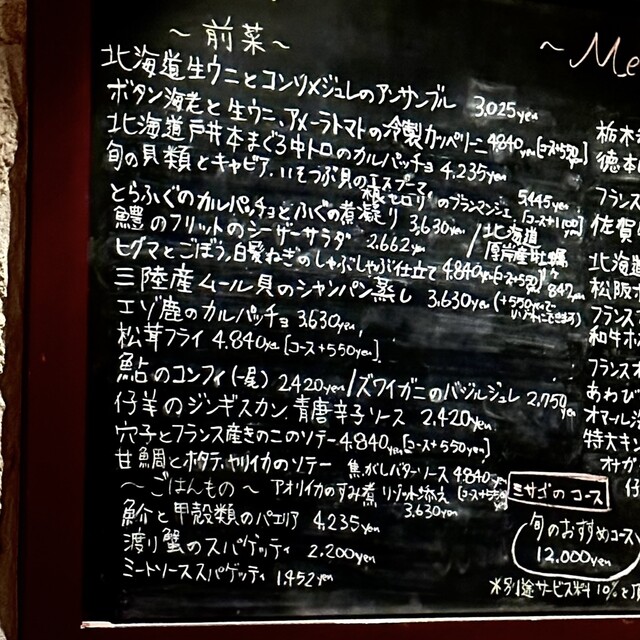 ～前菜～
北海道生ウニとコンソメジュレのアンサンブル 3,025yen
ボタン海老と生ウニ、アメーラトマトの冷製カッペリーニ 4840yen [コース+550yen]
北海道戸井本まぐろ中トロのカルパッチョ 4,235yen
旬の貝類とキャビア、いそつぶ貝のエスプーマ、
根セロリのブランマンジェ 5,445yen [コース+1100yen]
とらふぐのカルパッチョとふぐの煮凝り 3,630yen / 北海道
厚岸産牡蠣
鱧のフリットのシーザーサラダ 2.662yen
ヒグマとごぼう、白髪ねぎのしゃぶしゃぶ仕立て 4840yen [コース+550yen] 847yen
三陸産ムール貝のシャンパン蒸し 3,630yen (+550yenで
エゾ鹿のカルパッチョ 3,630yen
松茸フライ 4,840yen [コース+550yen]
鮎のコンフィ(一尾) 2420yen / ズワイガニのバジルジュレ 2,750yen
仔羊のジンギスカン、青唐辛子ソース 2,420yen
穴子とフランス産きのこのソテー 4,840yen [コース+550yen]
甘鯛とホタテ、ヤリイカのソテー 焦がしバターソース 4,840yen
～ごはんもの～ アオリイカのすみ煮 リゾット添え
3,630yen
魚介と甲殻類のパエリア 4,235yen
渡り蟹のスパゲッティ 2.200yen
ミートソーススパゲッティ 1,452yen
ミサゴのコース
旬のおすすめコース
12,000yen
※別途サービス料10%を頂
～Me
栃木
徳本
フランス
佐賀
北海道
松阪
フランス
和牛ホ
フランス
あわび
オマール
特大キン
オナガ
仔